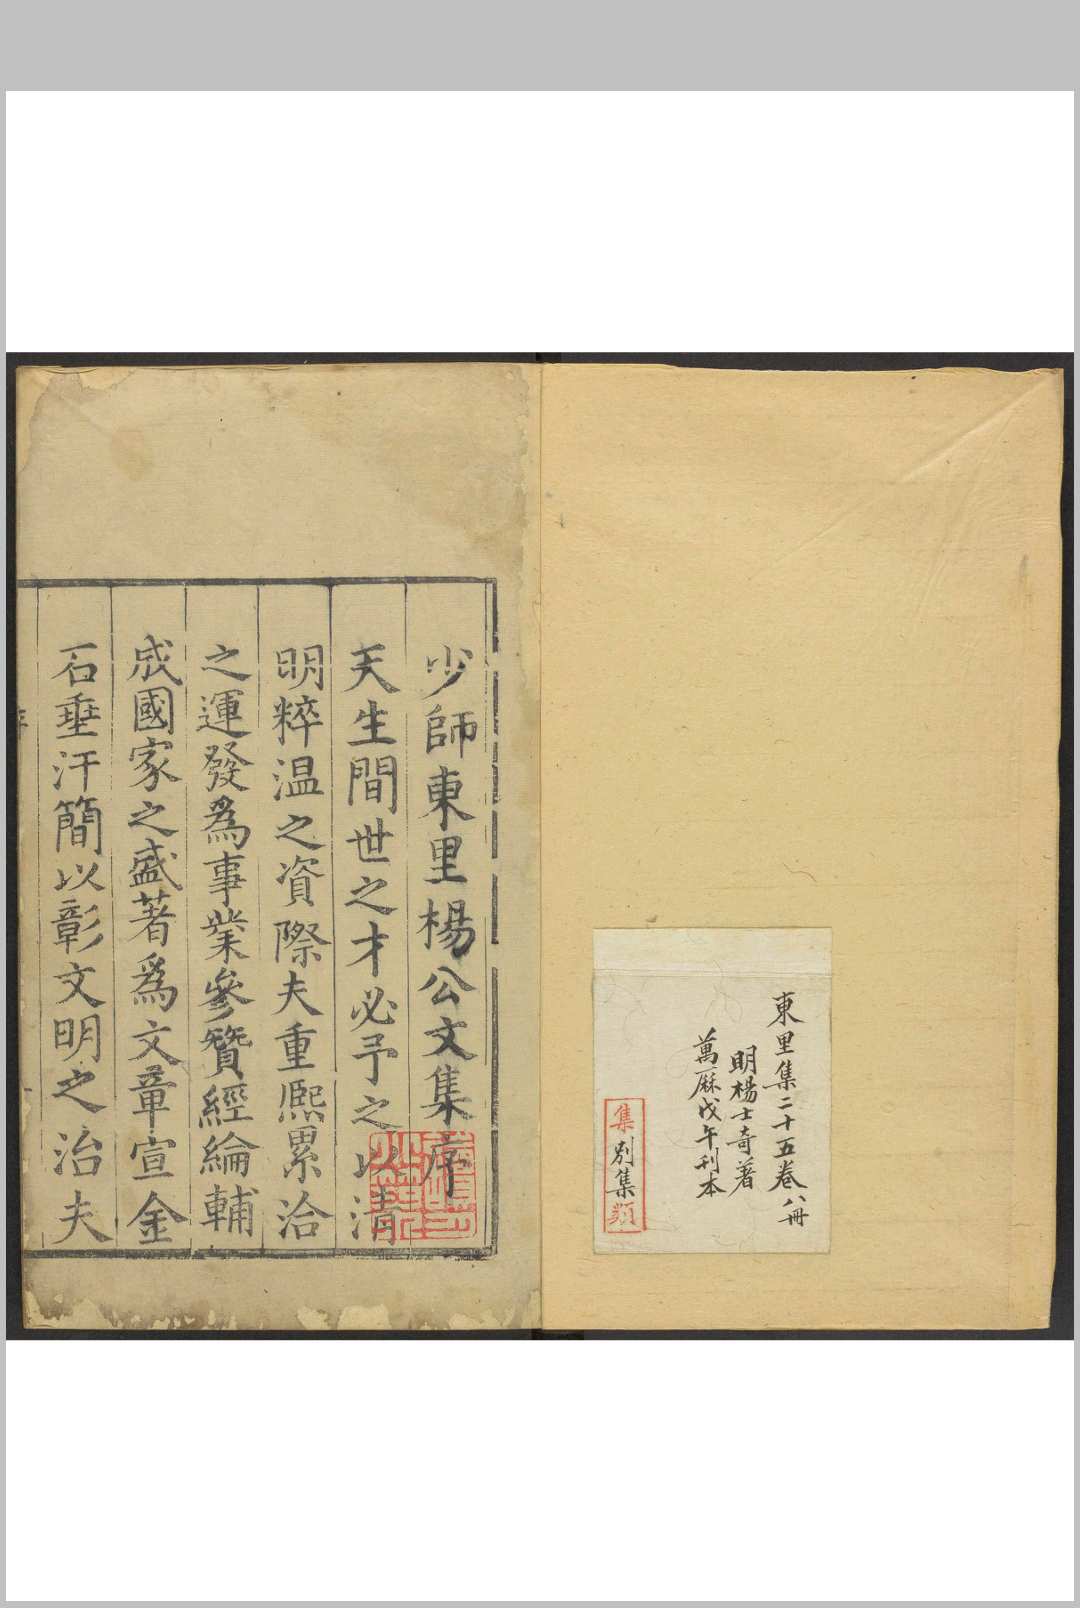 東里集二十五卷八冊
明楊士奇著
萬厤戊午刊本
集別集類
少師東里楊公文集序
天生間世之才必予之以清
明粹温之資際夫重熈累洽
之運發爲事業參贊經綸輔
成國家之盛著爲文章宣金
石垂汗簡以彰文明之治夫